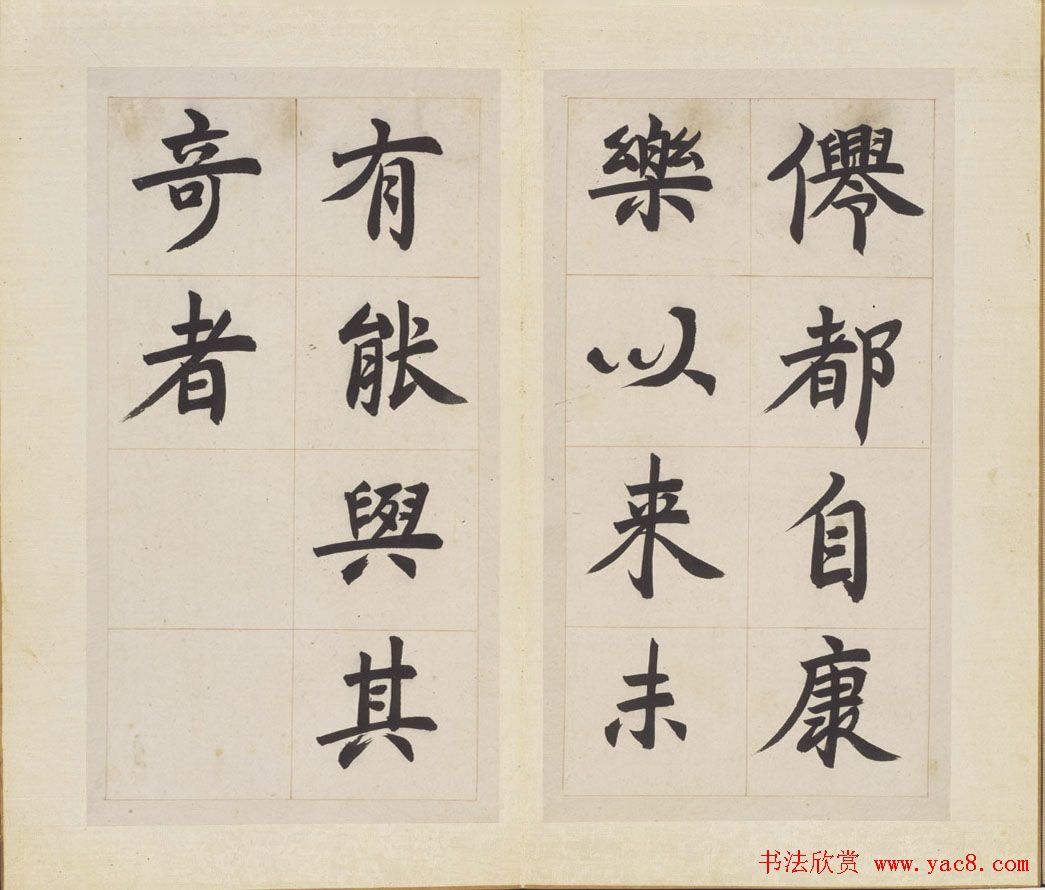 僊都自康
樂以来未
有能與其
奇者
书法欣赏 www.yac8.com